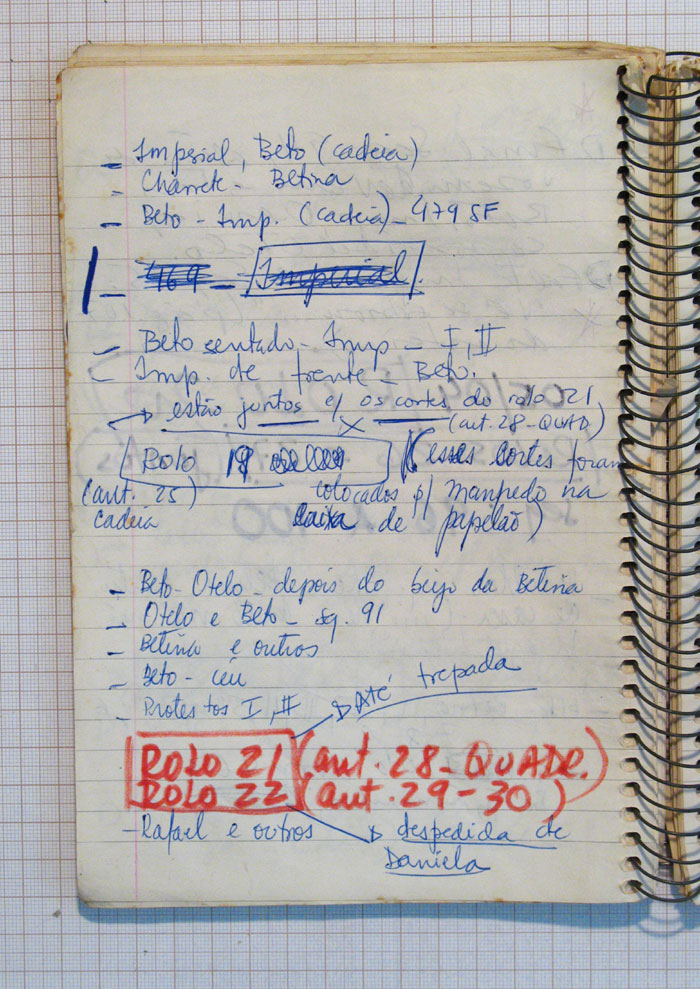 - Imperial, Beto (cadeia)
- Charrete - Betina
- Beto - Imp. (cadeia) - 479 SF
- 469 - Imperial.
- Beto sentado - Imp - I, II
- Imp. de frente - Beto.
estão juntos c/ os cortes do rolo 21
(ant. 28-QUAD.)
Rolo 19 (esses cortes foram
(ant. 25) colocados p/ Manpedo na
cadeia caixa de papelão)
- Beto-Otelo - depois do beijo da Betina
- Otelo e Beto - sq. 91
- Betina e outros
- Beto - céu
- Protestos I, II
Até trepada
ROLO 21 (ant. 28-QUADR.)
ROLO 22 (ant. 29-30)
- Rafael e outros
despedida de
Daniela